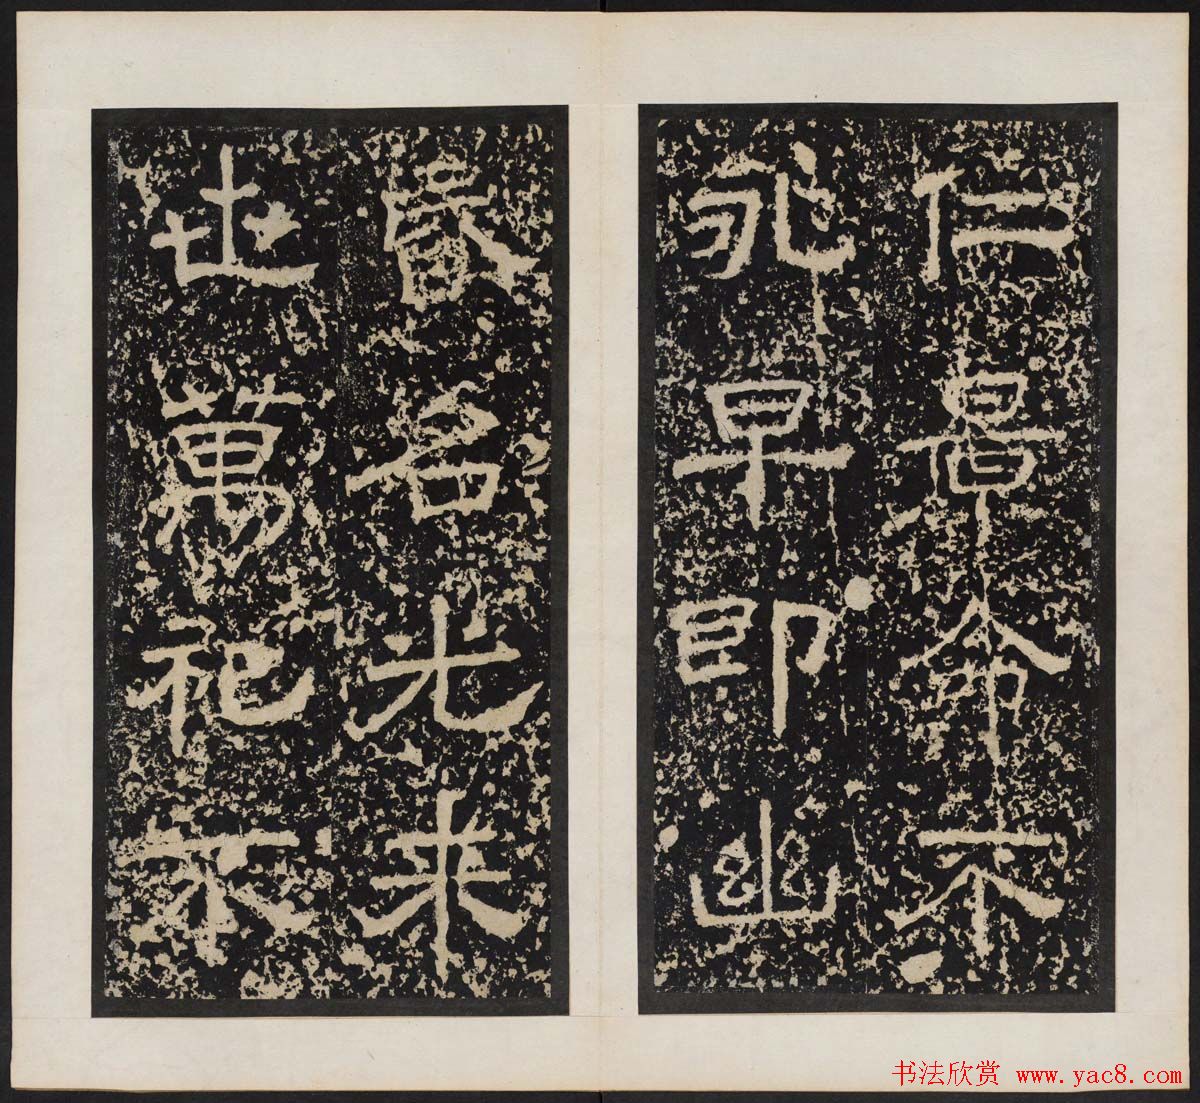 仁景命不
永早即幽
昬名光来
世萬祀不
书法欣赏 www.yac8.com